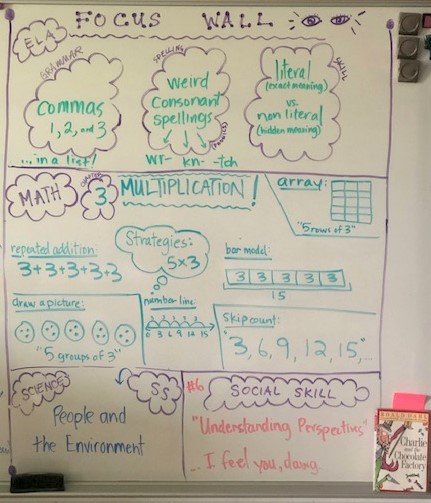 FOCUS WALL
ELA
GRAMMAR
commas
1, 2, and 3
...in a list!
SPELLING
weird
consonant
spellings
(phonics)
wr- kn- -tch
SKILL
literal
(exact meaning)
vs.
non literal
(hidden meaning)
MATH
CHAPTER
3
MULTIPLICATION!
array:
"5 rows of 3"
repeated addition:
3+3+3+3+3
Strategies:
5x3
bar model:
3 3 3 3 3
15
draw a picture:
"5 groups of 3"
number line:
0 3 6 9 12 15
skip count:
"3, 6, 9, 12, 15,"...
SCIENCE
SS
People and
the Environment
#6
SOCIAL SKILL
"Understanding Perspectives"
... I feel you, dawg
ROALD DAHL
Charlie
and the
Chocolate
Factory